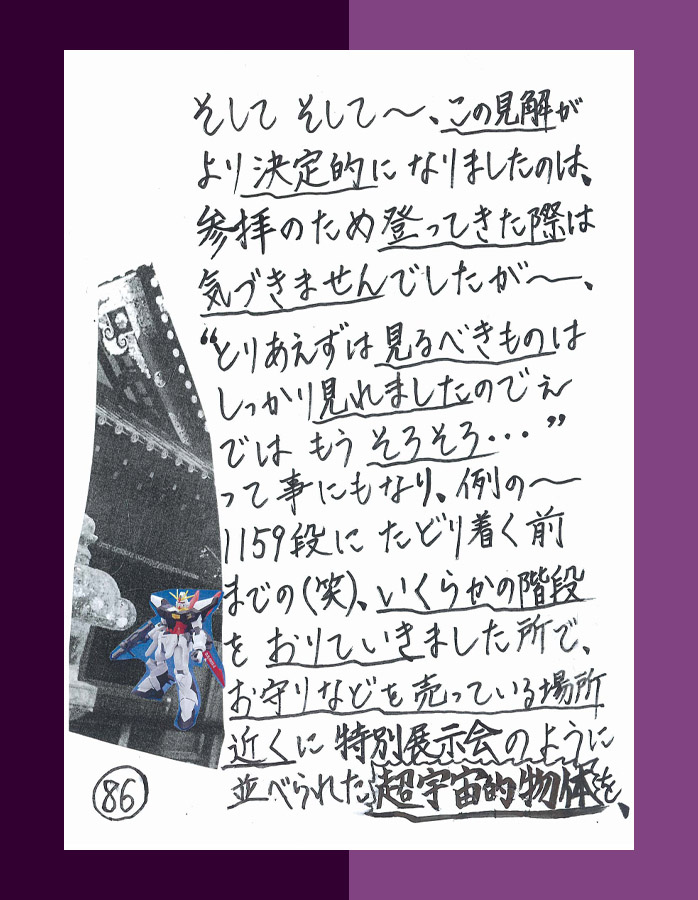 そして そして〜、この見解が
より決定的になりましたのは、
参拝のため登ってきた際は
気づきませんでしたが〜、
“とりあえずは見るべきものは
しっかり見れましたのでぇ
では もう そろそろ・・・”
って事にもなり、例の〜
1159段に たどり着く前
までの(笑)、いくらかの階段
を おりていきました所で、
お守りなどを売っている場所
近くに 特別展示会のように
並べられた 超宇宙的物体を、
86